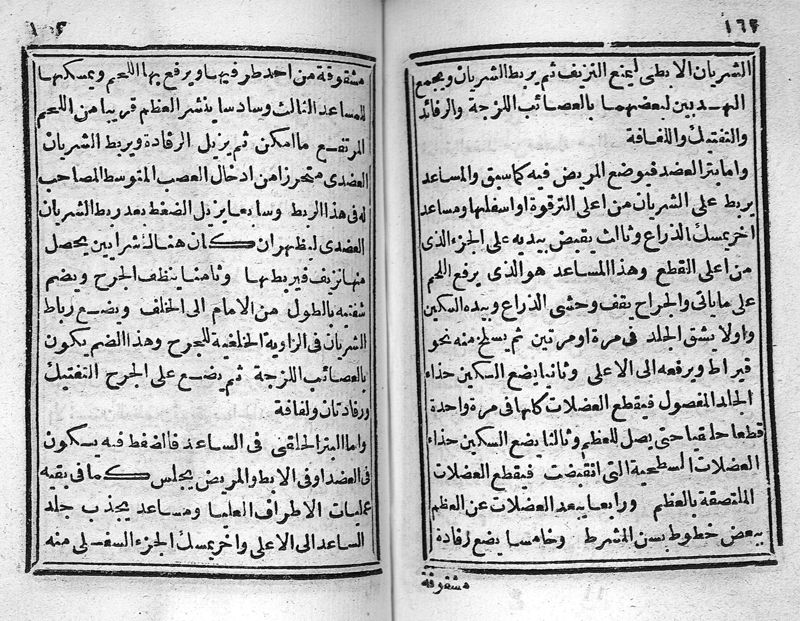 ١٦٢
الشريان الابطى ليمنع النزيف ثم يربط الشريان ويجمع
الهدبين لبعضهما بالعصائب اللزجة والرفائد
والتفتيك واللفافة
وامابتر العضد فيوضع المريض فيه كماسبق والمساعد
يربط على الشريان من اعلى الترقوة او اسفلها ومساعد
اخريمسك الذراع وثالث يقبض بيديه على الجزء الذى
من اعلى القطع وهذا المساعد هو الذى يرفع اللحم
على ماياتى والجراح يقف وحشى الذراع وبيده السكين
واولا يشق الجلد فى مرة او مرتين ثم يسلخ منه نحو
قيراط ويرفعه الى الاعلى وثانيا يضع السكين حذاء
الجلد المفصول فيقطع العضلات كلها فى مرة واحدة
قطعا حلقيا حتى يصل للعظم وثالثا يضع السكين حذاء
العضلات السطحية التى انقبضت فيقطع العضلات
الملتصقة بالعظم ورابعا يبعد العضلات عن العظم
ببعض خطوط بسن المشرط وخامسا يضع رفادة
مشقوقة
مشقوقة من احد طرفيها ويرفع بها اللحم ويمسكها
للمساعد الثالث وسادسا ينشر العظم قريبا من اللحم
المرتفع ماامكن ثم يزيل الرفادة ويربط الشريان
العضدى متحرزا من ادخال العصب المتوسط المصاحب
له فى هذا الربط وسابعا يزيل الضغط بعد ربط الشريان
العضدى ليظهر ان كان هناك شرايين يحصل
منها نزيف فيربطها وثامنا ينظف الجرح ويضم
شفتيه بالطول من الامام الى الخلف ويضع رباط
الشريان فى الزاوية الخلفية للجرح وهذا الضم يكون
بالعصائب اللزجة ثم يضع على الجرح التفتيك
ورفادتان ولفافة
واما البتر الحلقى فى الساعد فالضغط فيه يكون
فى العضد او فى الابط والمريض يجلس كما فى بقيه
عمليات الاطراف العليا ومساعد يجذب جلد
الساعد الى الاعلى واخر يمسك الجزء السفلى منه